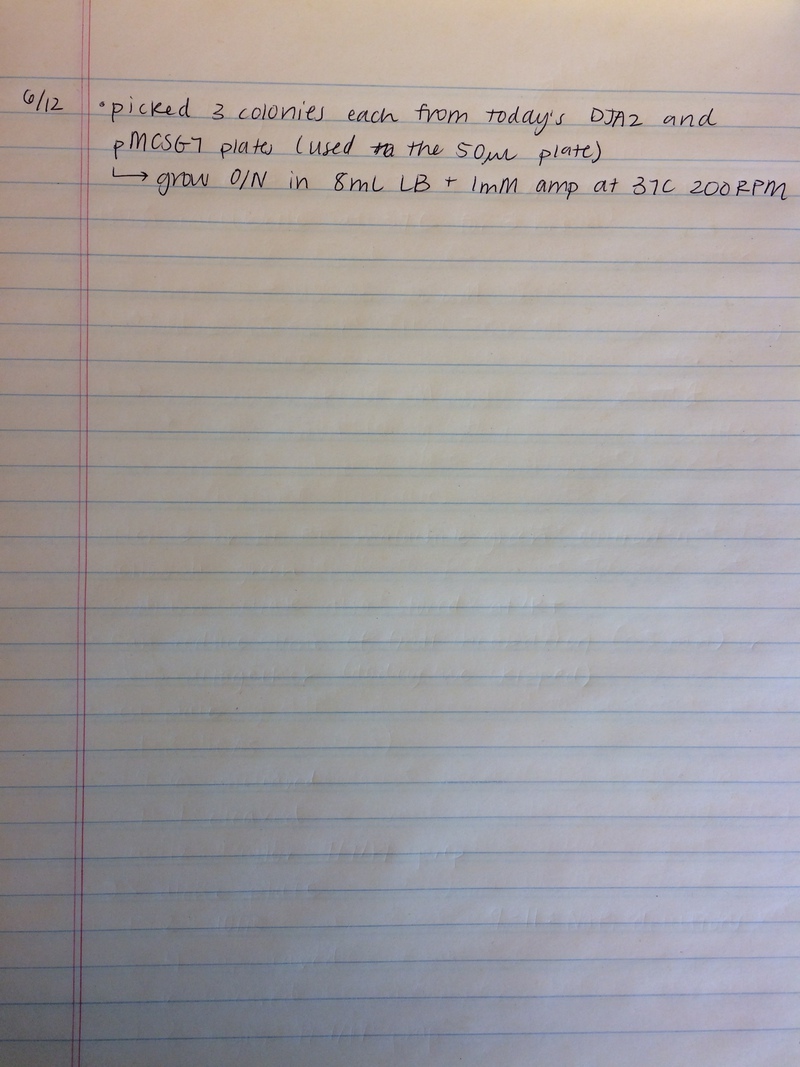 6/12 • picked 3 colonies each from today's DJA2 and
pMCSG7 plates (used the 50µL plate)
↳ grow O/N in 8mL LB + 1mM amp at 37C 200RPM